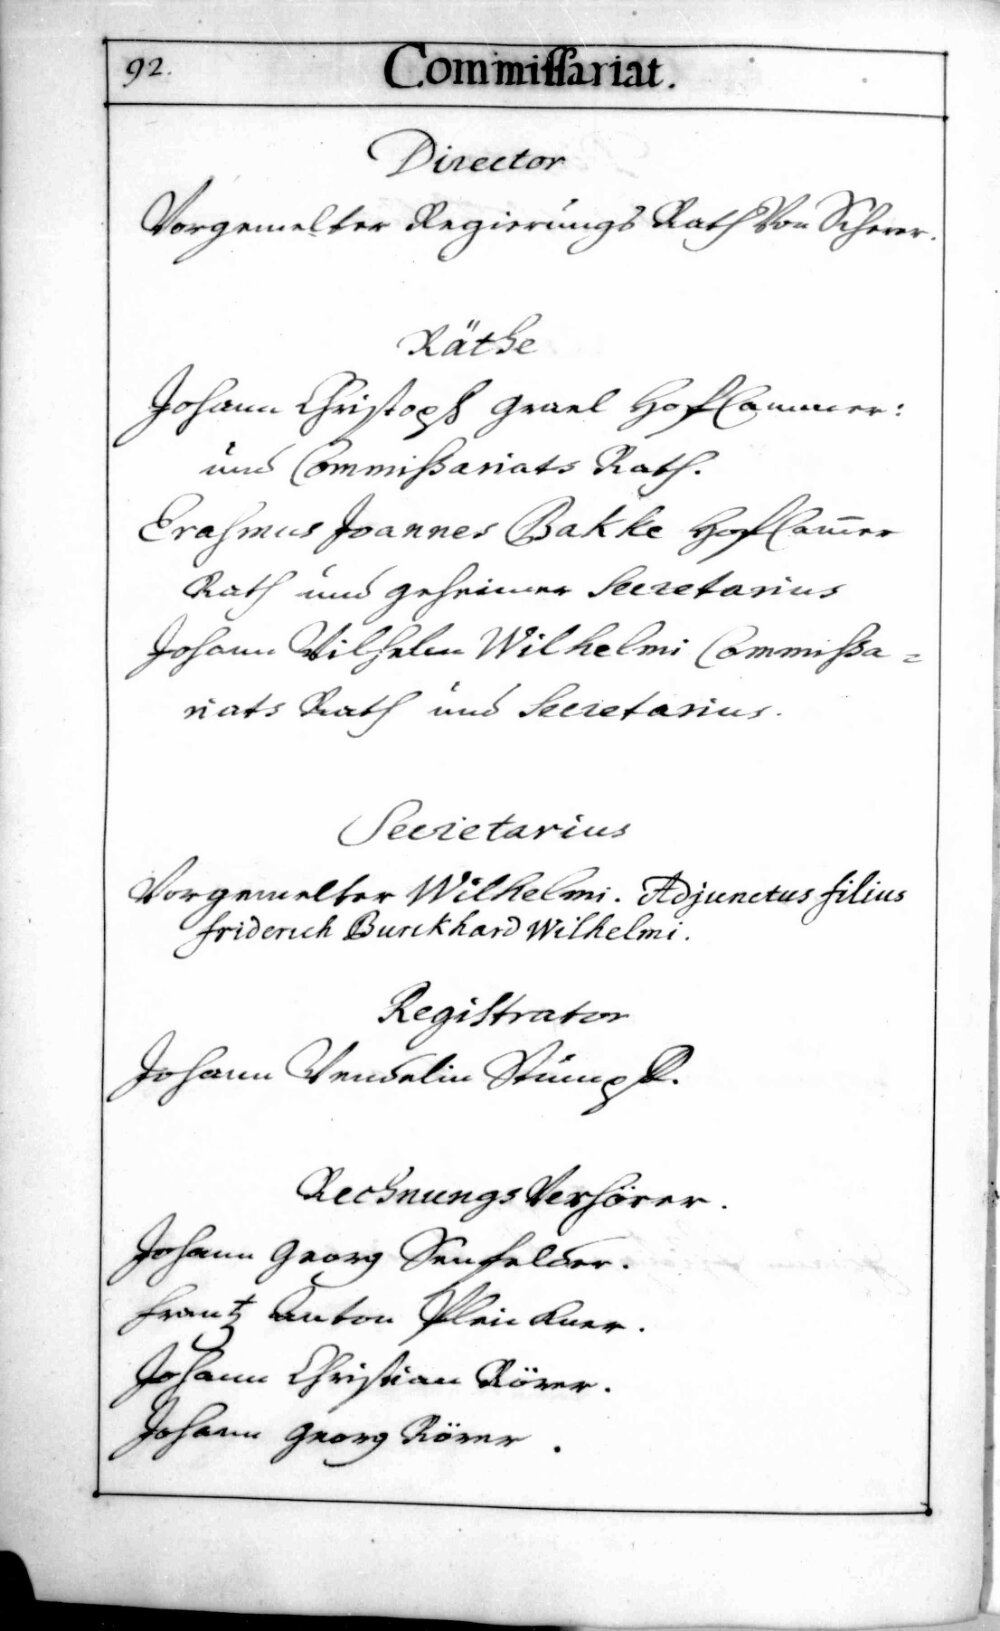 92.
Commissariat.
Director
Vorgemelter Regierungs Rath Von Scherer.
Räthe
Johann Christoph Grael Hoff Cammer:
und Commissariats Rath.
Erasmus Joannes Bakke Hoff Cam̄er
Rath und geheimer Secretarius
Johann Wilhelm Wilhelmi Commissa=
riats Rath und Secretarius.
Secretarius
Vorgemelter Wilhelmi. Adjunctus filius
friderich Burckhard Wilhelmi.
Registrator
Johann Wendelin Stumpff.
Rechnungs Verhörer.
Johann Georg Senfelder.
Frantz Anton Pleickner.
Johann Christian Rörer.
Johann Georg Rörer.